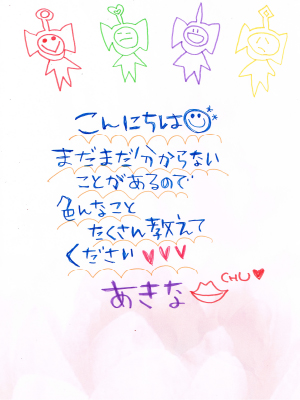 こんにちは
まだまだ分からない
ことがあるので
色んなこと
たくさん教えて
ください
あきな
CHU